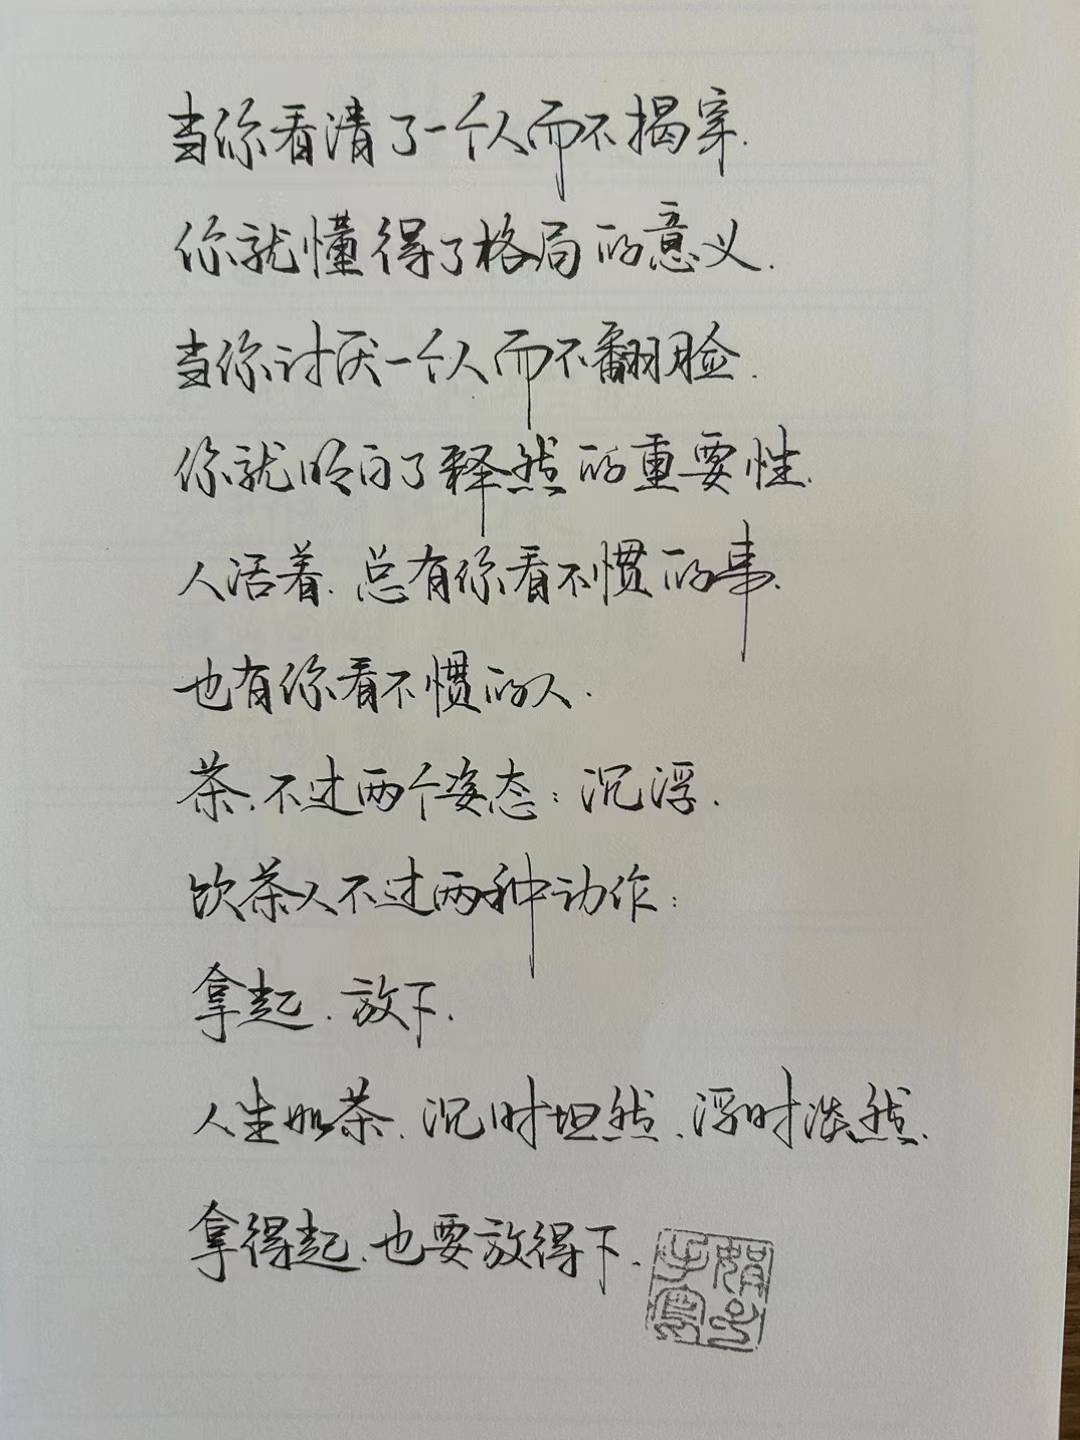 当你看清了一个人而不揭穿.
你就懂得了格局的意义.
当你讨厌一个人而不翻脸.
你就明白了释然的重要性.
人活着.总有你看不惯的事.
也有你看不惯的人.
茶.不过两个姿态:沉浮.
饮茶人不过两种动作:
拿起.放下.
人生如茶.沉时坦然.浮时淡然.
拿得起.也要放得下.